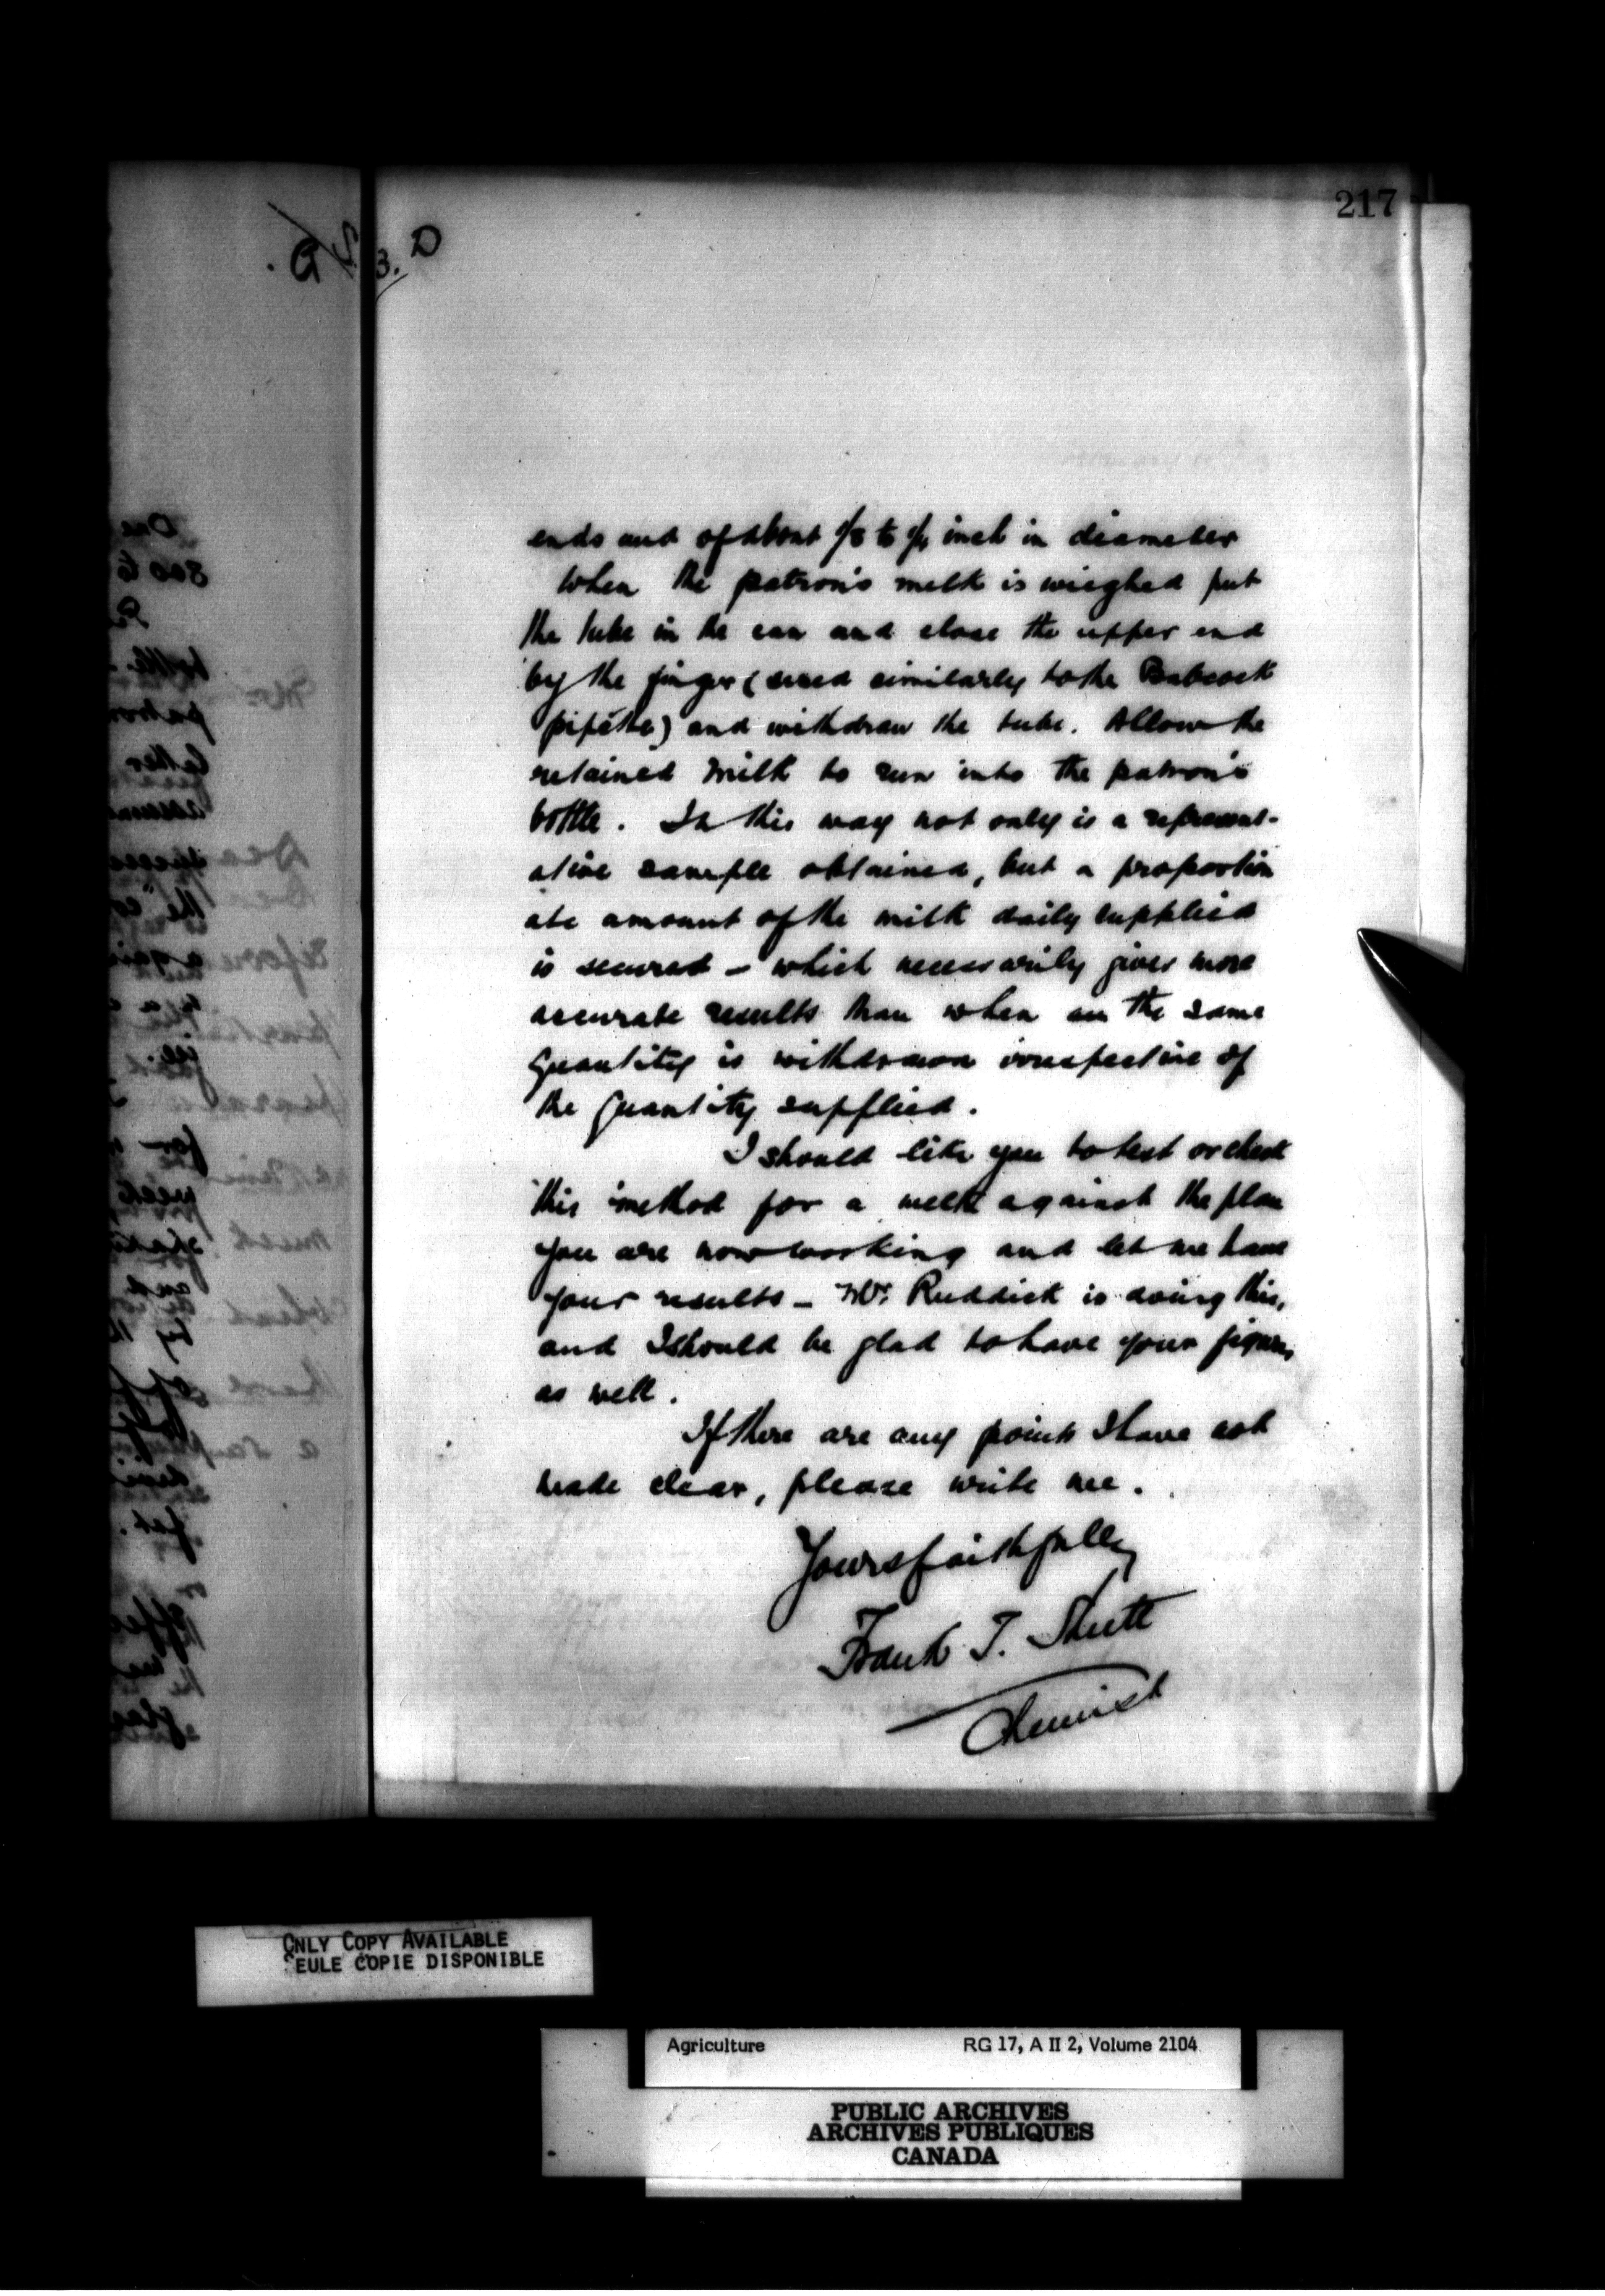 217
3. D
ends and of about 1/8 to 1/4 inch in diameter
When the patron's milk is wieghed put
the tube in the can and close the upper end
by the finger (used similarly to the Babcock
pipette) and withdraw the tube. Allow the
retained milk to run into the patron's
bottle. In this way not only is a represent-
ative sample obtained, but a proportion
ate amount of the milk daily supplied
is secured - which necessarily gives more
accurate results than when the same
quantity is withdrawn irrespective of
the quantity supplied.
I should like you to test or check
this method for a week against the plan
you are now working and let me have
your results - Mr. Ruddick is doing this,
and I should be glad to have your figures
as well.
If there are any points I have not
made clear, please write me.
Yours faithfully
Frank T. Shutt
Chemist
ONLY COPY AVAILABLE
SEULE COPIE DISPONIBLE
Agriculture RG 17, A II 2, Volume 2104
PUBLIC ARCHIVES
ARCHIVES PUBLIQUES
CANADA